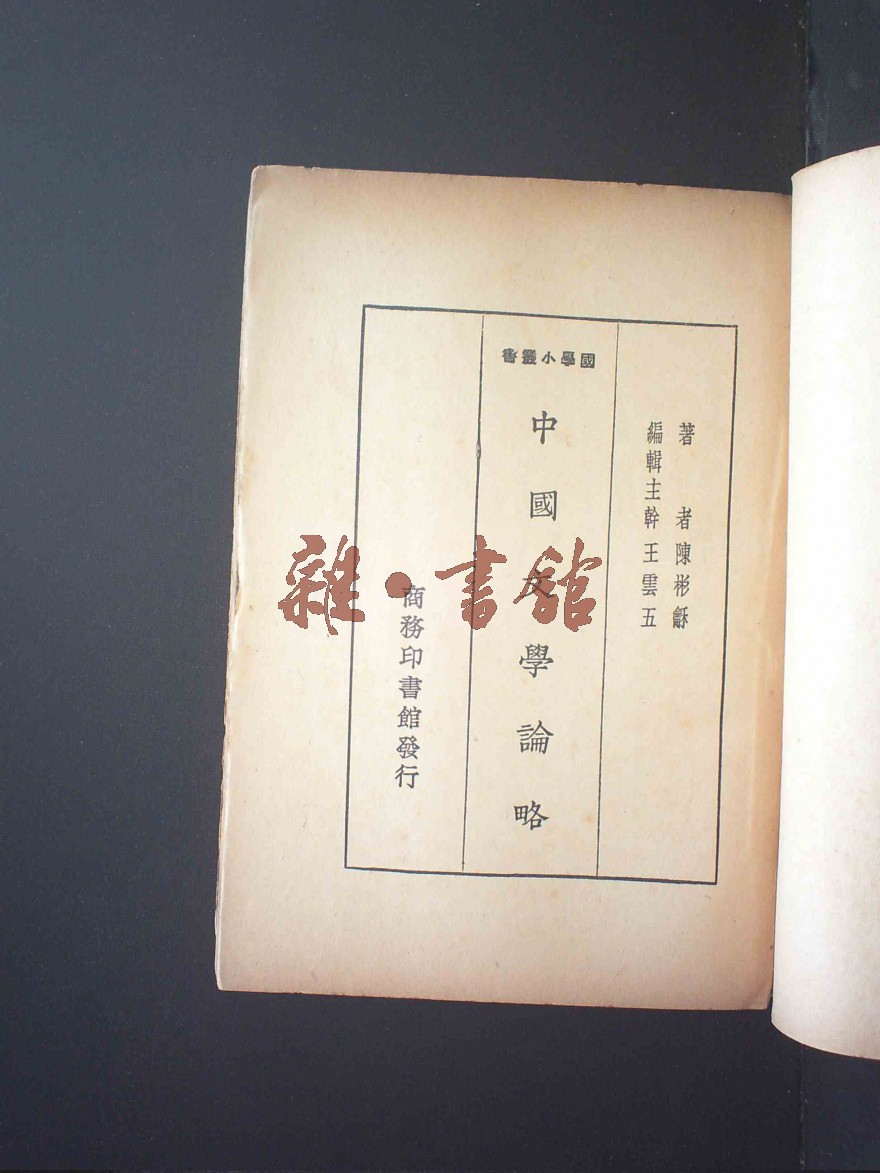 著者陳彬龢
編輯主幹王雲五
國學小叢書
中國文學論略
商務印書館發行
雜·書館